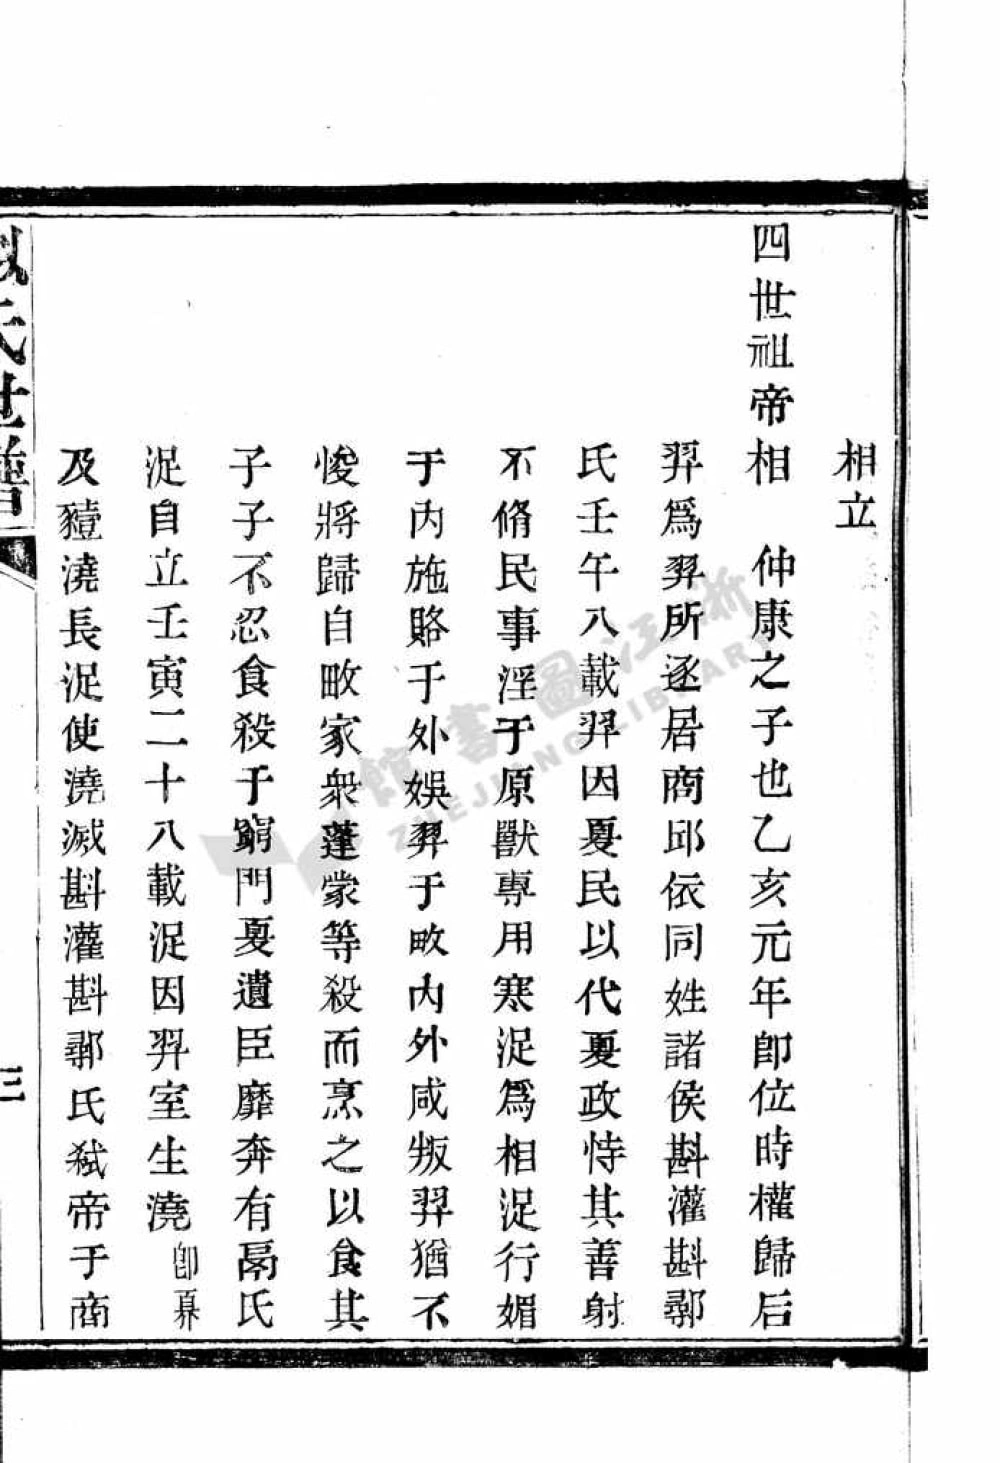 相立
四世祖帝相　仲康之子也乙亥元年卽位時權歸后
羿爲羿所逐居商邱依同姓諸侯斟灌斟鄩
氏壬午八載羿因夏民以代夏政恃其善射
不脩民事淫于原獸專用寒浞爲相浞行媚
于內施賂于外娛羿于畋內外咸叛羿猶不
悛將歸自畋家衆蓬蒙等殺而烹之以食其
子子不忍食殺于窮門夏遺臣靡奔有鬲氏
浞自立壬寅二十八載浞因羿室生澆卽奡
及豷澆長浞使澆滅斟灌斟鄩氏弒帝于商
姒氏世譜
三
浙江圖書館
ZHEJIANG LIBRARY